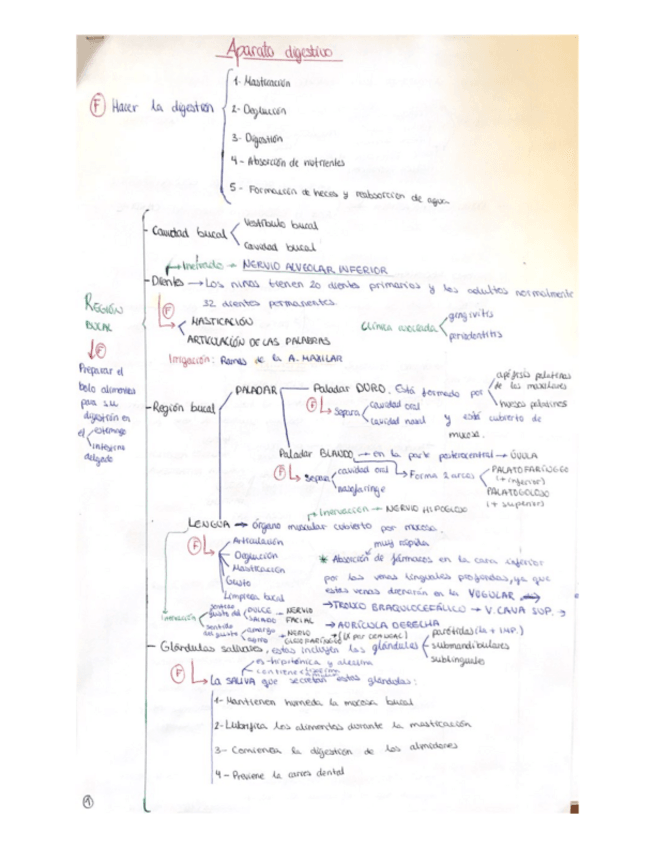 Aparato digestivo
F Hacer la digestión
1- Masticación
2- Deglución
3- Digestión
4- Absorción de nutrientes
5- Formación de heces y reabsorción de agua
REGIÓN BUCAL
F
Preparar el
bolo alimenticio
para su
digestión en
el estómago
intestino
delgado
- Cavidad bucal
Vestíbulo bucal
Cavidad bucal
Inervado → NERVIO ALVEOLAR INFERIOR
- Dientes → Los niños tienen 20 dientes primarios y los adultos normalmente
32 dientes permanentes.
F
MASTICACIÓN
ARTICULACIÓN DE LAS PALABRAS
Clínica asociada
gingivitis
periodontitis
Irrigación: Ramas de la A. MAXILAR
- Región bucal
PALADAR
Paladar DURO. Está formado por
apófisis palatinas
de los maxilares
huesos palatinos
F Separa
cavidad oral
cavidad nasal
y está cubierto de
mucosa.
Paladar BLANDO → en la parte posterocentral → ÚVULA
F Separa
cavidad oral
nasofaringe
Forma 2 arcos
PALATOFARÍNGEO
(+ inferior)
PALATOGLOSO
(+ superior)
Inervación → NERVIO HIPOGLOSO
LENGUA → órgano muscular cubierto por mucosa.
F
Articulación
Deglución
Masticación
Gusto
Limpieza bucal
muy rápida
* Absorción de fármacos en la cara inferior
por las venas linguales profundas, ya que
estas venas drenarán en la YUGULAR →
→ TRONCO BRAQUIOCEFÁLICO → V. CAVA SUP. →
→ AURÍCULA DERECHA
Inervación
sentido
gusto del
DULCE
SALADO
NERVIO
FACIAL
sentido
del gusto
amargo
agrio
NERVIO
GLOSOFARÍNGEO
- Glándulas salivares, estas incluyen las glándulas
parótidas (la + IMP.)
submandibulares
sublinguales
es hipotónica y alcalina
contiene
F La SALIVA que secretan estas glándulas:
1- Mantienen húmeda la mucosa bucal
2- Lubrifica los alimentos durante la masticación
3- Comienza la digestión de los almidones
4- Previene la caries dental
1